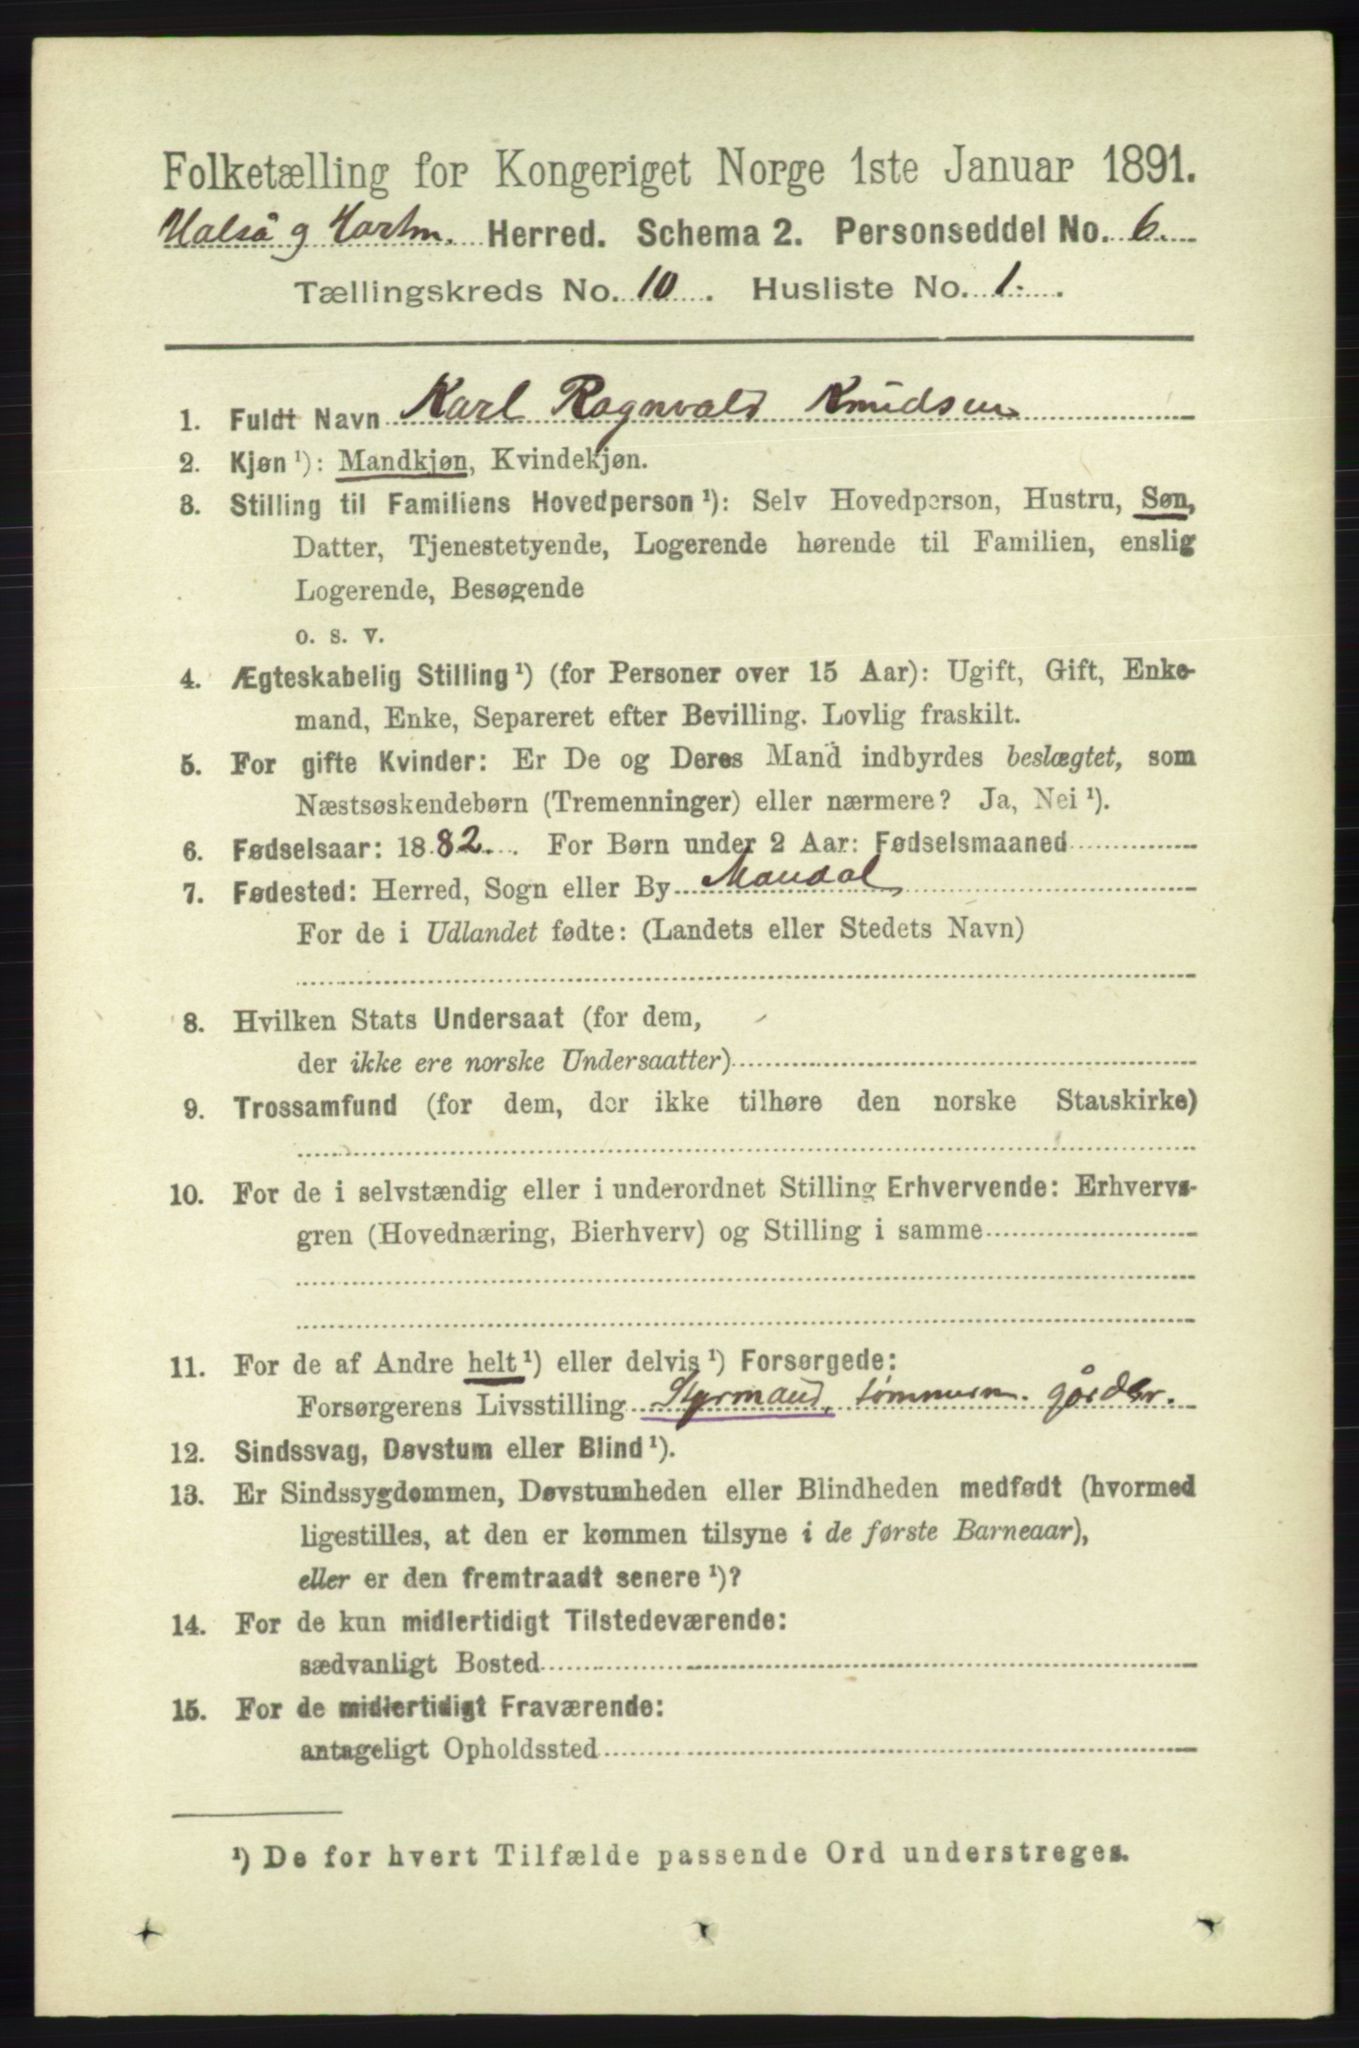 Folketælling for Kongeriget Norge 1ste Januar 1891.
Halså og Hartm. Herred. Schema 2. Personseddel No. 6.
Tællingskreds No. 10. Husliste No. 1.
1. Fuldt Navn Karl Ragnvald Knudsen
2. Kjøn ¹): Mandkjøn, Kvindekjøn.
3. Stilling til Familiens Hovedperson ¹): Selv Hovedperson, Hustru, Søn,
Datter, Tjenestetyende, Logerende hørende til Familien, enslig
Logerende, Besøgende
o. s. v.
4. Ægteskabelig Stilling ¹) (for Personer over 15 Aar): Ugift, Gift, Enke-
mand, Enke, Separeret efter Bevilling. Lovlig fraskilt.
5. For gifte Kvinder: Er De og Deres Mand indbyrdes beslægtet, som
Næstsøskendebørn (Tremenninger) eller nærmere? Ja, Nei ¹).
6. Fødselsaar: 1882. For Børn under 2 Aar: Fødselsmaaned
7. Fødested: Herred, Sogn eller By Mandal
For de i Udlandet fødte: (Landets eller Stedets Navn)
8. Hvilken Stats Undersaat (for dem,
der ikke ere norske Undersaatter)
9. Trossamfund (for dem, der ikke tilhøre den norske Statskirke)
10. For de i selvstændig eller i underordnet Stilling Erhvervende: Erhvervs-
gren (Hovednæring, Bierhverv) og Stilling i samme
11. For de af Andre helt ¹) eller delvis ¹) Forsørgede:
Forsørgerens Livsstilling Styrmand,
12. Sindssvag, Døvstum eller Blind ¹).
13. Er Sindssygdommen, Døvstumheden eller Blindheden medfødt (hvormed
ligestilles, at den er kommen tilsyne i de første Barneaar),
eller er den fremtraadt senere ¹)?
14. For de kun midlertidigt Tilstedeværende:
sædvanligt Bosted
15. For de midlertidigt Fraværende:
antageligt Opholdssted
¹) De for hvert Tilfælde passende Ord understreges.